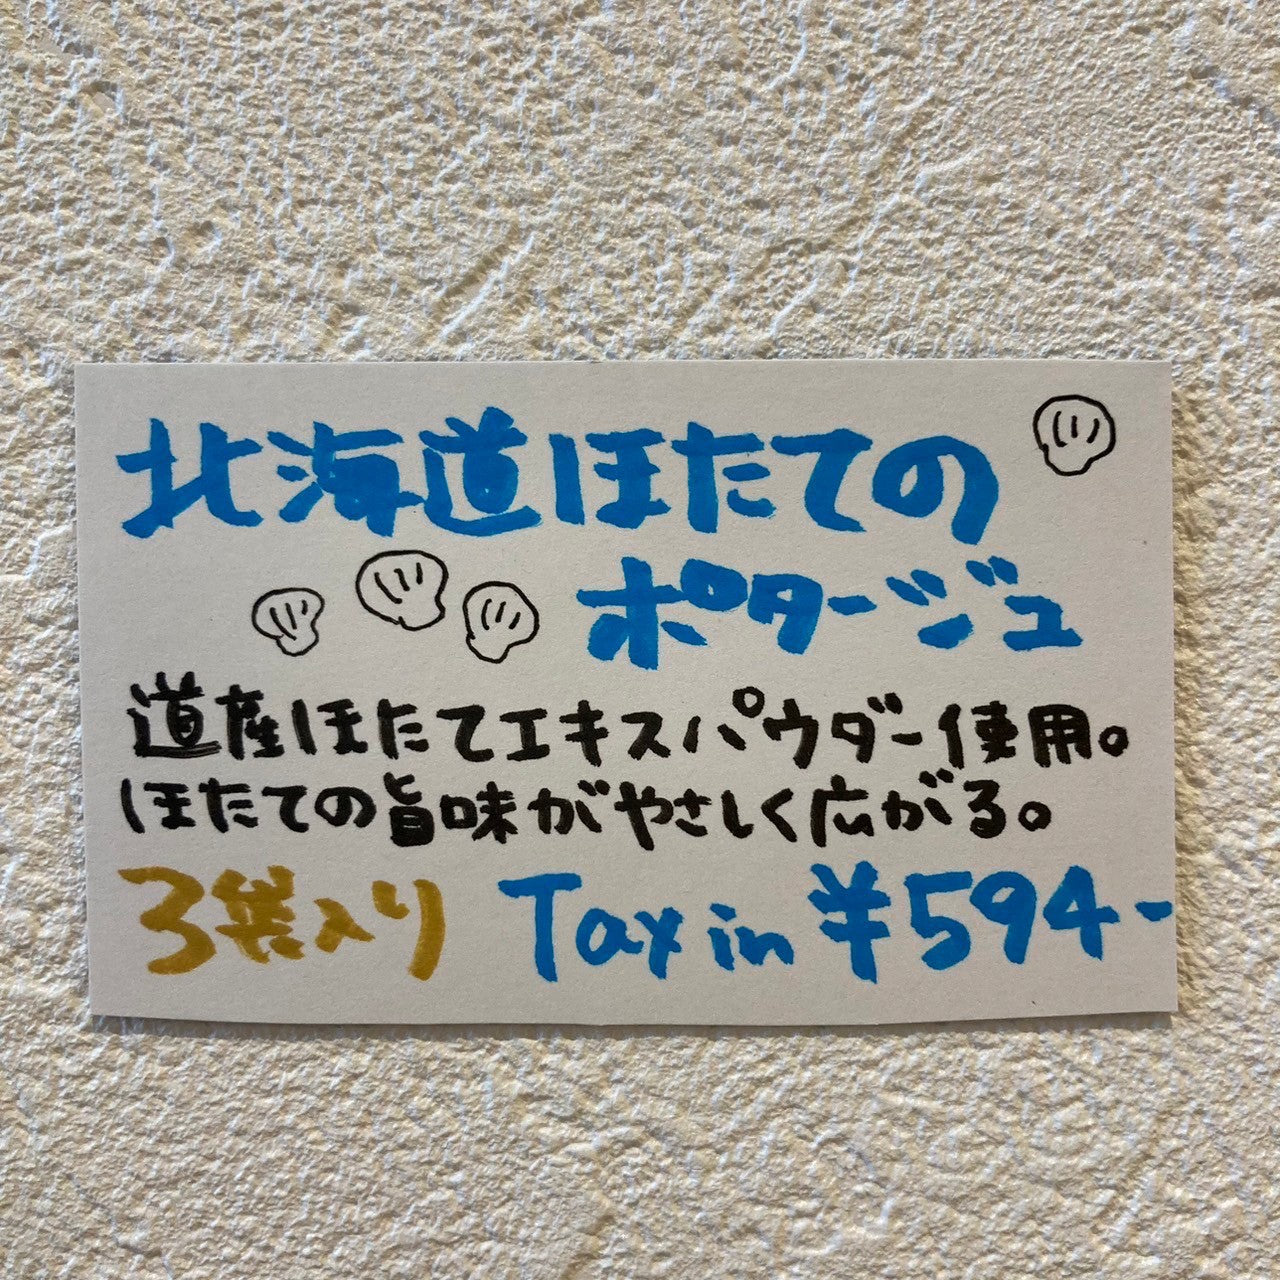 北海道ほたての
ポタージュ
道産ほたてエキスパウダー使用。
ほたての旨味がやさしく広がる。
3袋入り Tax in ¥594-